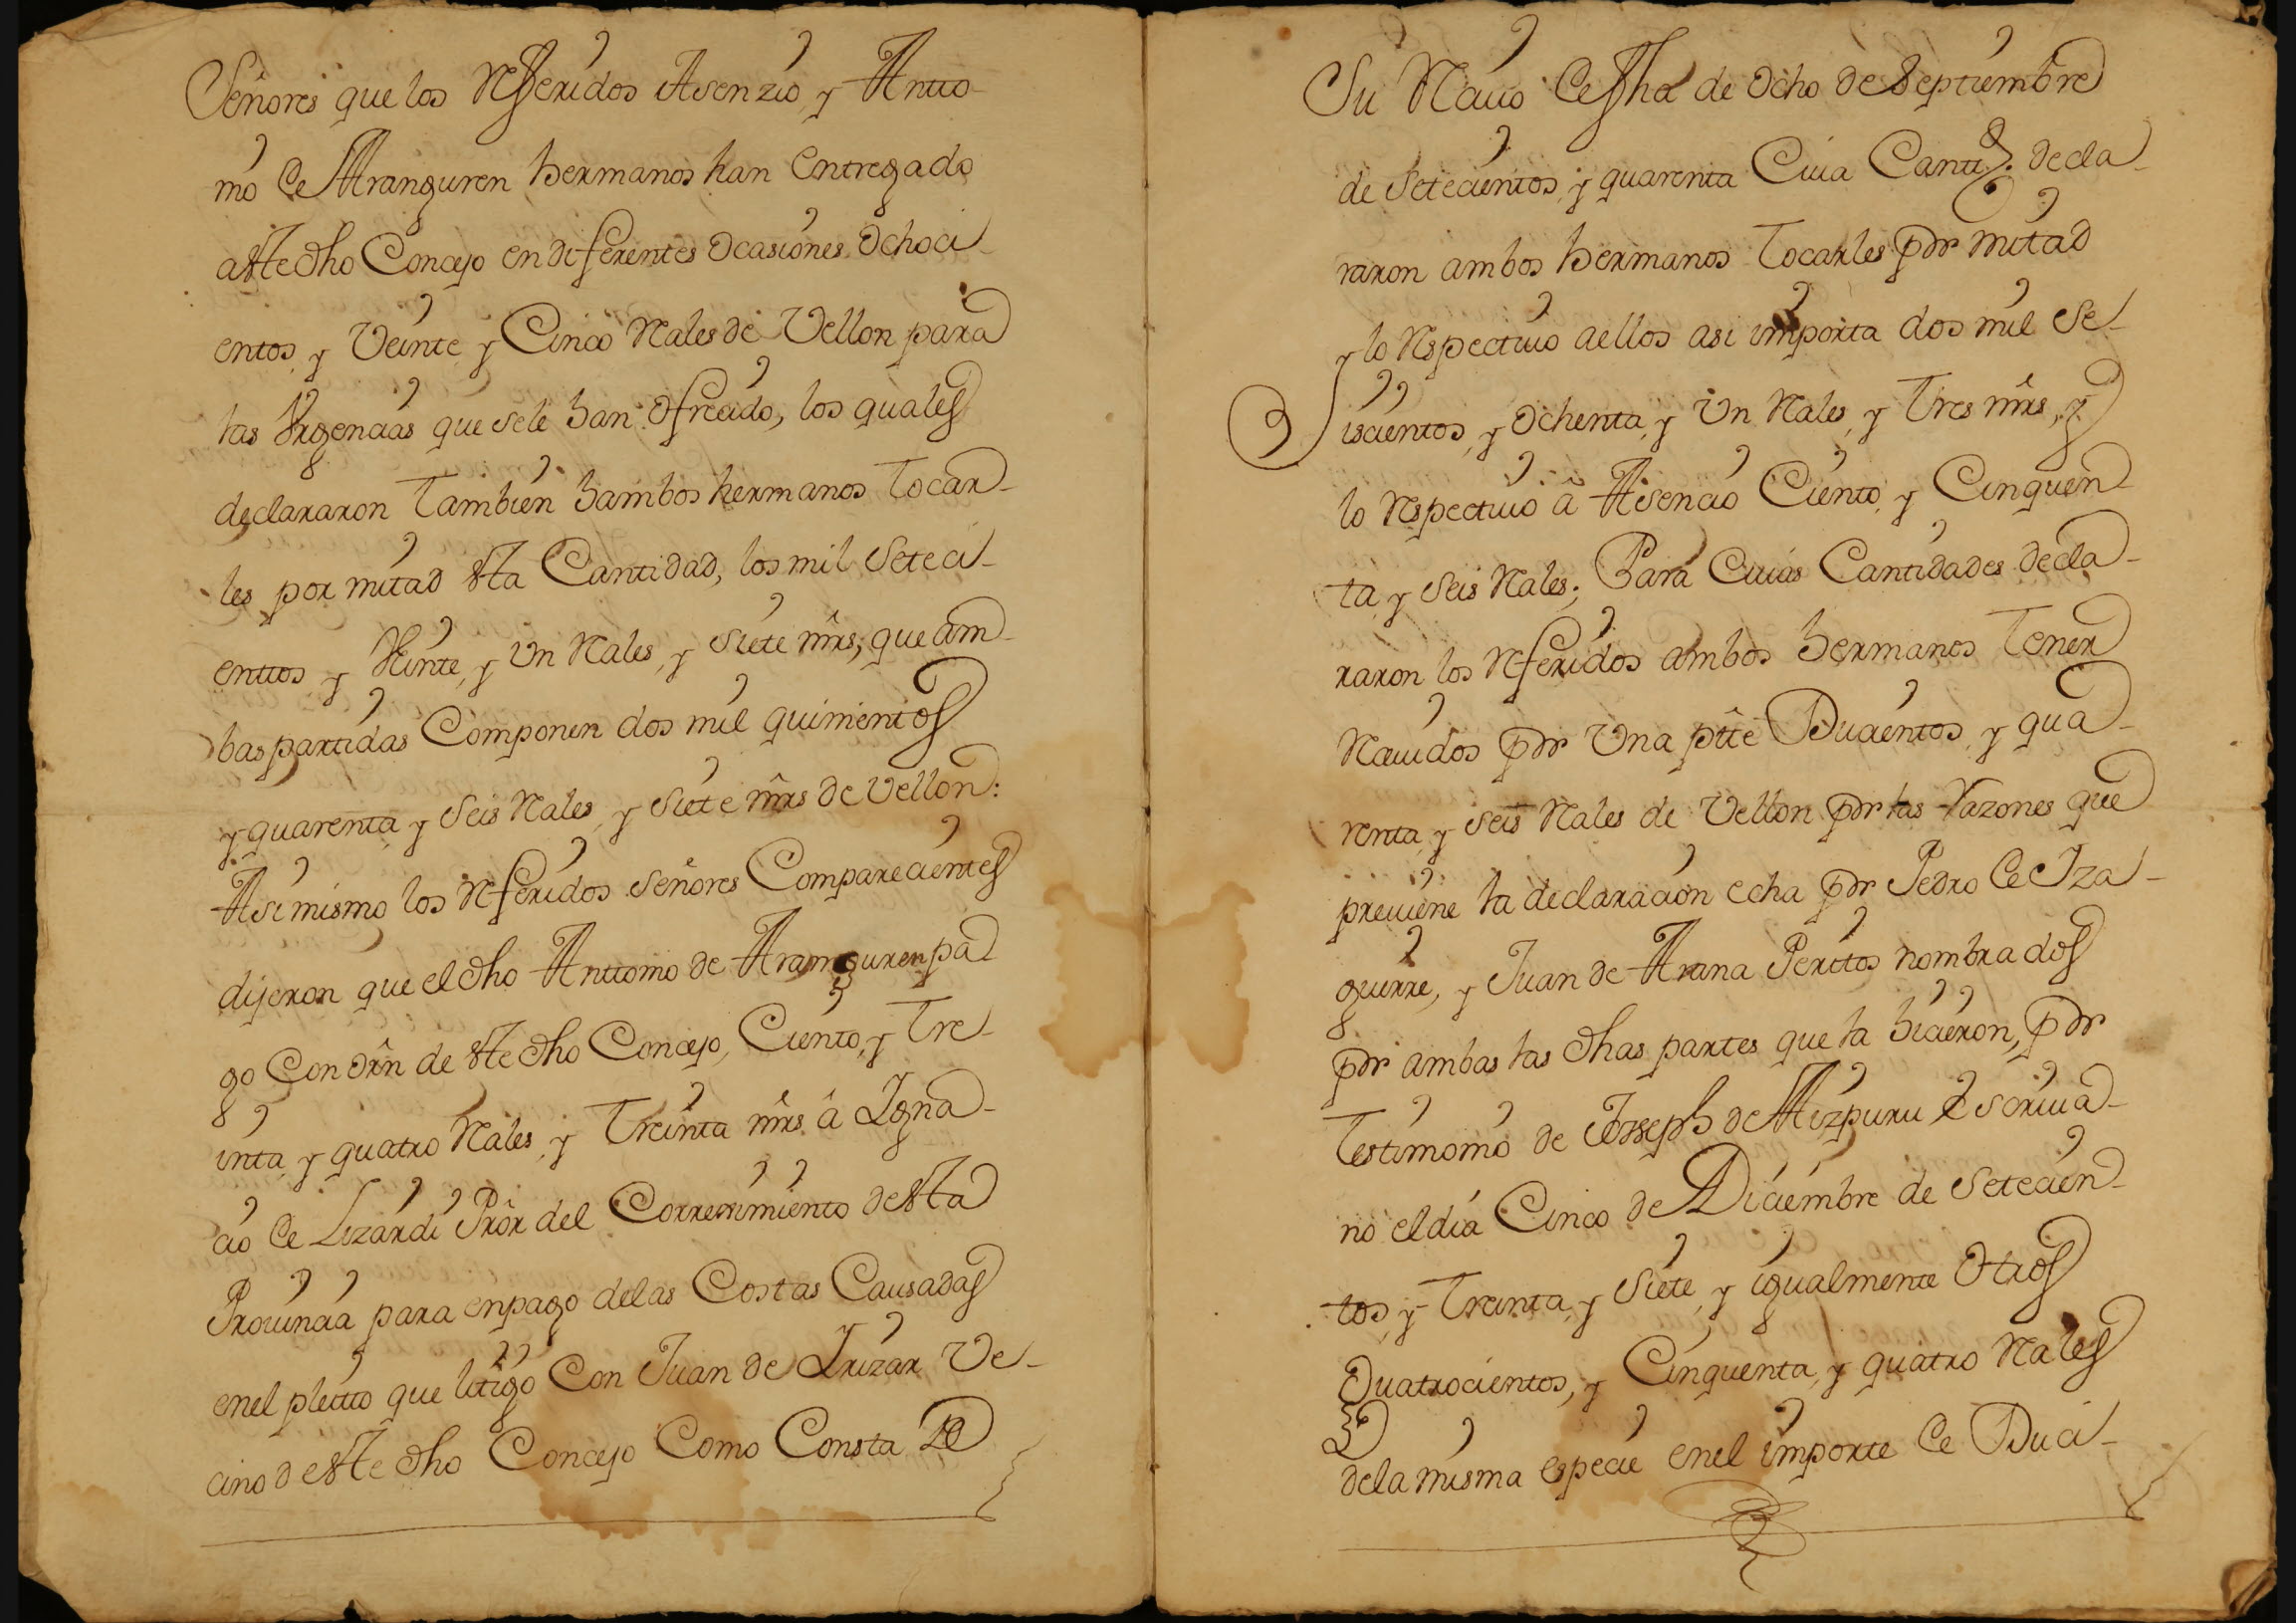 Señores que los Rferidos Asenzio, y Antto-
nio de Aranguren hermanos han Entregado
a este dho Concejo en diferentes ocasiones ochoci-
entos, y Veinte y Cinco Rales de Vellon para
las Vrgencias que se le han ofrecido, los quales
declararon Tambien hambos hermanos Tocar-
les por mitad esta Cantidad, los mil Seteci-
enttos y Veinte, y Un Rales, y Siete mrs; que am-
bas partidas Componen dos mil quinientos
y quarenta, y Seis Rales, y Siete mrs de Vellon:
Asi mismo los Rferidos Señores Comparecientes
dijeron que el dho Anttonio de Aranguren pa-
go Con orn de este dho Concejo, Ciento, y Tre-
inta, y quatro Rales, y Treinta mrs â Igna-
cio de Lizardi Pror del Correximiento de esta
Prouincia para en pago de las Costas Causadas
en el pleitto que litigo Con Juan de Irizar Ve-
cino de este dho Concejo Como Consta de
Su Rauo de fha de ocho de Septiembre
de Setecientos, y quarenta Cuia Cantd. decla-
raron ambos hermanos Tocarles por mitad
y lo Rspectiuo a ellos asi importa dos mil Se-
iscientos, y ochenta, y Un Rales, y Tres mrs, y
lo Rspectiuo â Asencio Ciento, y Cinquen-
ta, y Seis Rales; Para Cuias Cantidades decla-
raron los Rferidos ambos hermanos Tener
Rauidos por Una ptte Ducientos, y qua-
renta, y Seis Rales de Vellon por las Razones que
preuiene la declaracion echa por Pedro de Iza-
guirre, y Juan de Arana Peritos nombrados
por ambas las dhas partes que la hicieron, por
Testimonio de Joseph de Aizpuru Escriua-
no el dia Cinco de Diciembre de Setecien-
tos, y Treinta, y Siete, y igualmente Otros
Quatrocientos, y Cinquenta, y quatro Rales
de la misma especie en el importe de Duci-